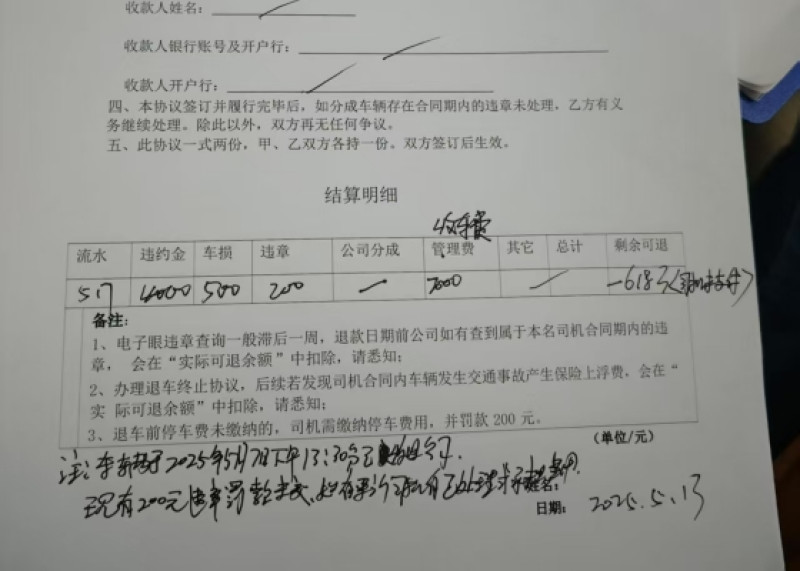 收款人姓名：
收款人银行账号及开户行：
收款人开户行：
四、本协议签订并履行完毕后，如分成车辆存在合同期内的违章未处理，乙方有义
务继续处理。除此以外，双方再无任何争议。
五、此协议一式两份，甲、乙双方各持一份。双方签订后生效。
结算明细
收车费
流水 违约金 车损 违章 公司分成 管理费 其它 总计 剩余可退
517 4000 500 200 — 2000 -618
备注：
1、电子眼违章查询一般滞后一周，退款日期前公司如有查到属于本名司机合同期内的违
章， 会在“实际可退余额”中扣除，请悉知；
2、办理退车终止协议，后续若发现司机合同内车辆发生交通事故产生保险上浮费，会在“
实 际可退余额”中扣除，请悉知；
3、退车前停车费未缴纳的，司机需缴纳停车费用，并罚款 200 元。
（单位/元）
注：车辆于2025年5月7日下午13:30
现有200元违章罚款未 自己处理
姓名：
日期： 2025.5.13